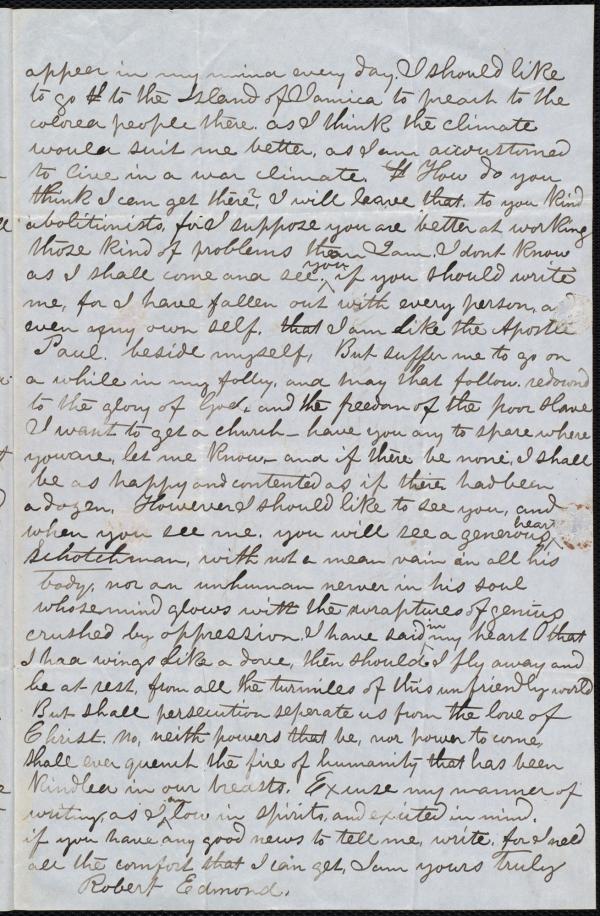 appeer in my mind every day. I should like
to go to the Island of Jamica to preach to the
colored people there. as I think the climate
would suit me better, as I am accustomed
to live in a war climate. How do you
think I can get there? I will leave that. to you kind
abolitionists, for I suppose you are better at working
those kind of problems than I am. I dont know
as I shall come and see you, if you should write
me, for I have fallen out with every person, and
even my own self. that I am like the Apostle
Paul. beside myself, But suffer me to go on
a while in my folley, and may that follow. redownd
to the glory of God, and the freedom of the poor slave
I want to get a church - have you any to spare where
you are, let me know - and if there be none, I shall
be as happy and contented as if there had been
a dozen. However I should like to see you, and
when you see me. you will see a generous heart
Schotchman, with not a mean vain an all his
body, nor an unhuman nerver in his soul
whose mind glows with the wraptures of genius
crushed by oppression. I have said in my heart O that
I had wings like a dove, then should I fly away and
be at rest, from all the turmiles of this unfriendly world
But shall persecution seperate us from the love of
Christ. no, neith powers that be, nor power to come,
shall ever quench the fire of humanity that has been
kindled in our breasts. Excuse my manner of
writing, as I am low in spirits, and exsited in mind.
if you have any good news to tell me, write. for I need
all the comfort that I can get, I am yours Truly
Robert Edmond.